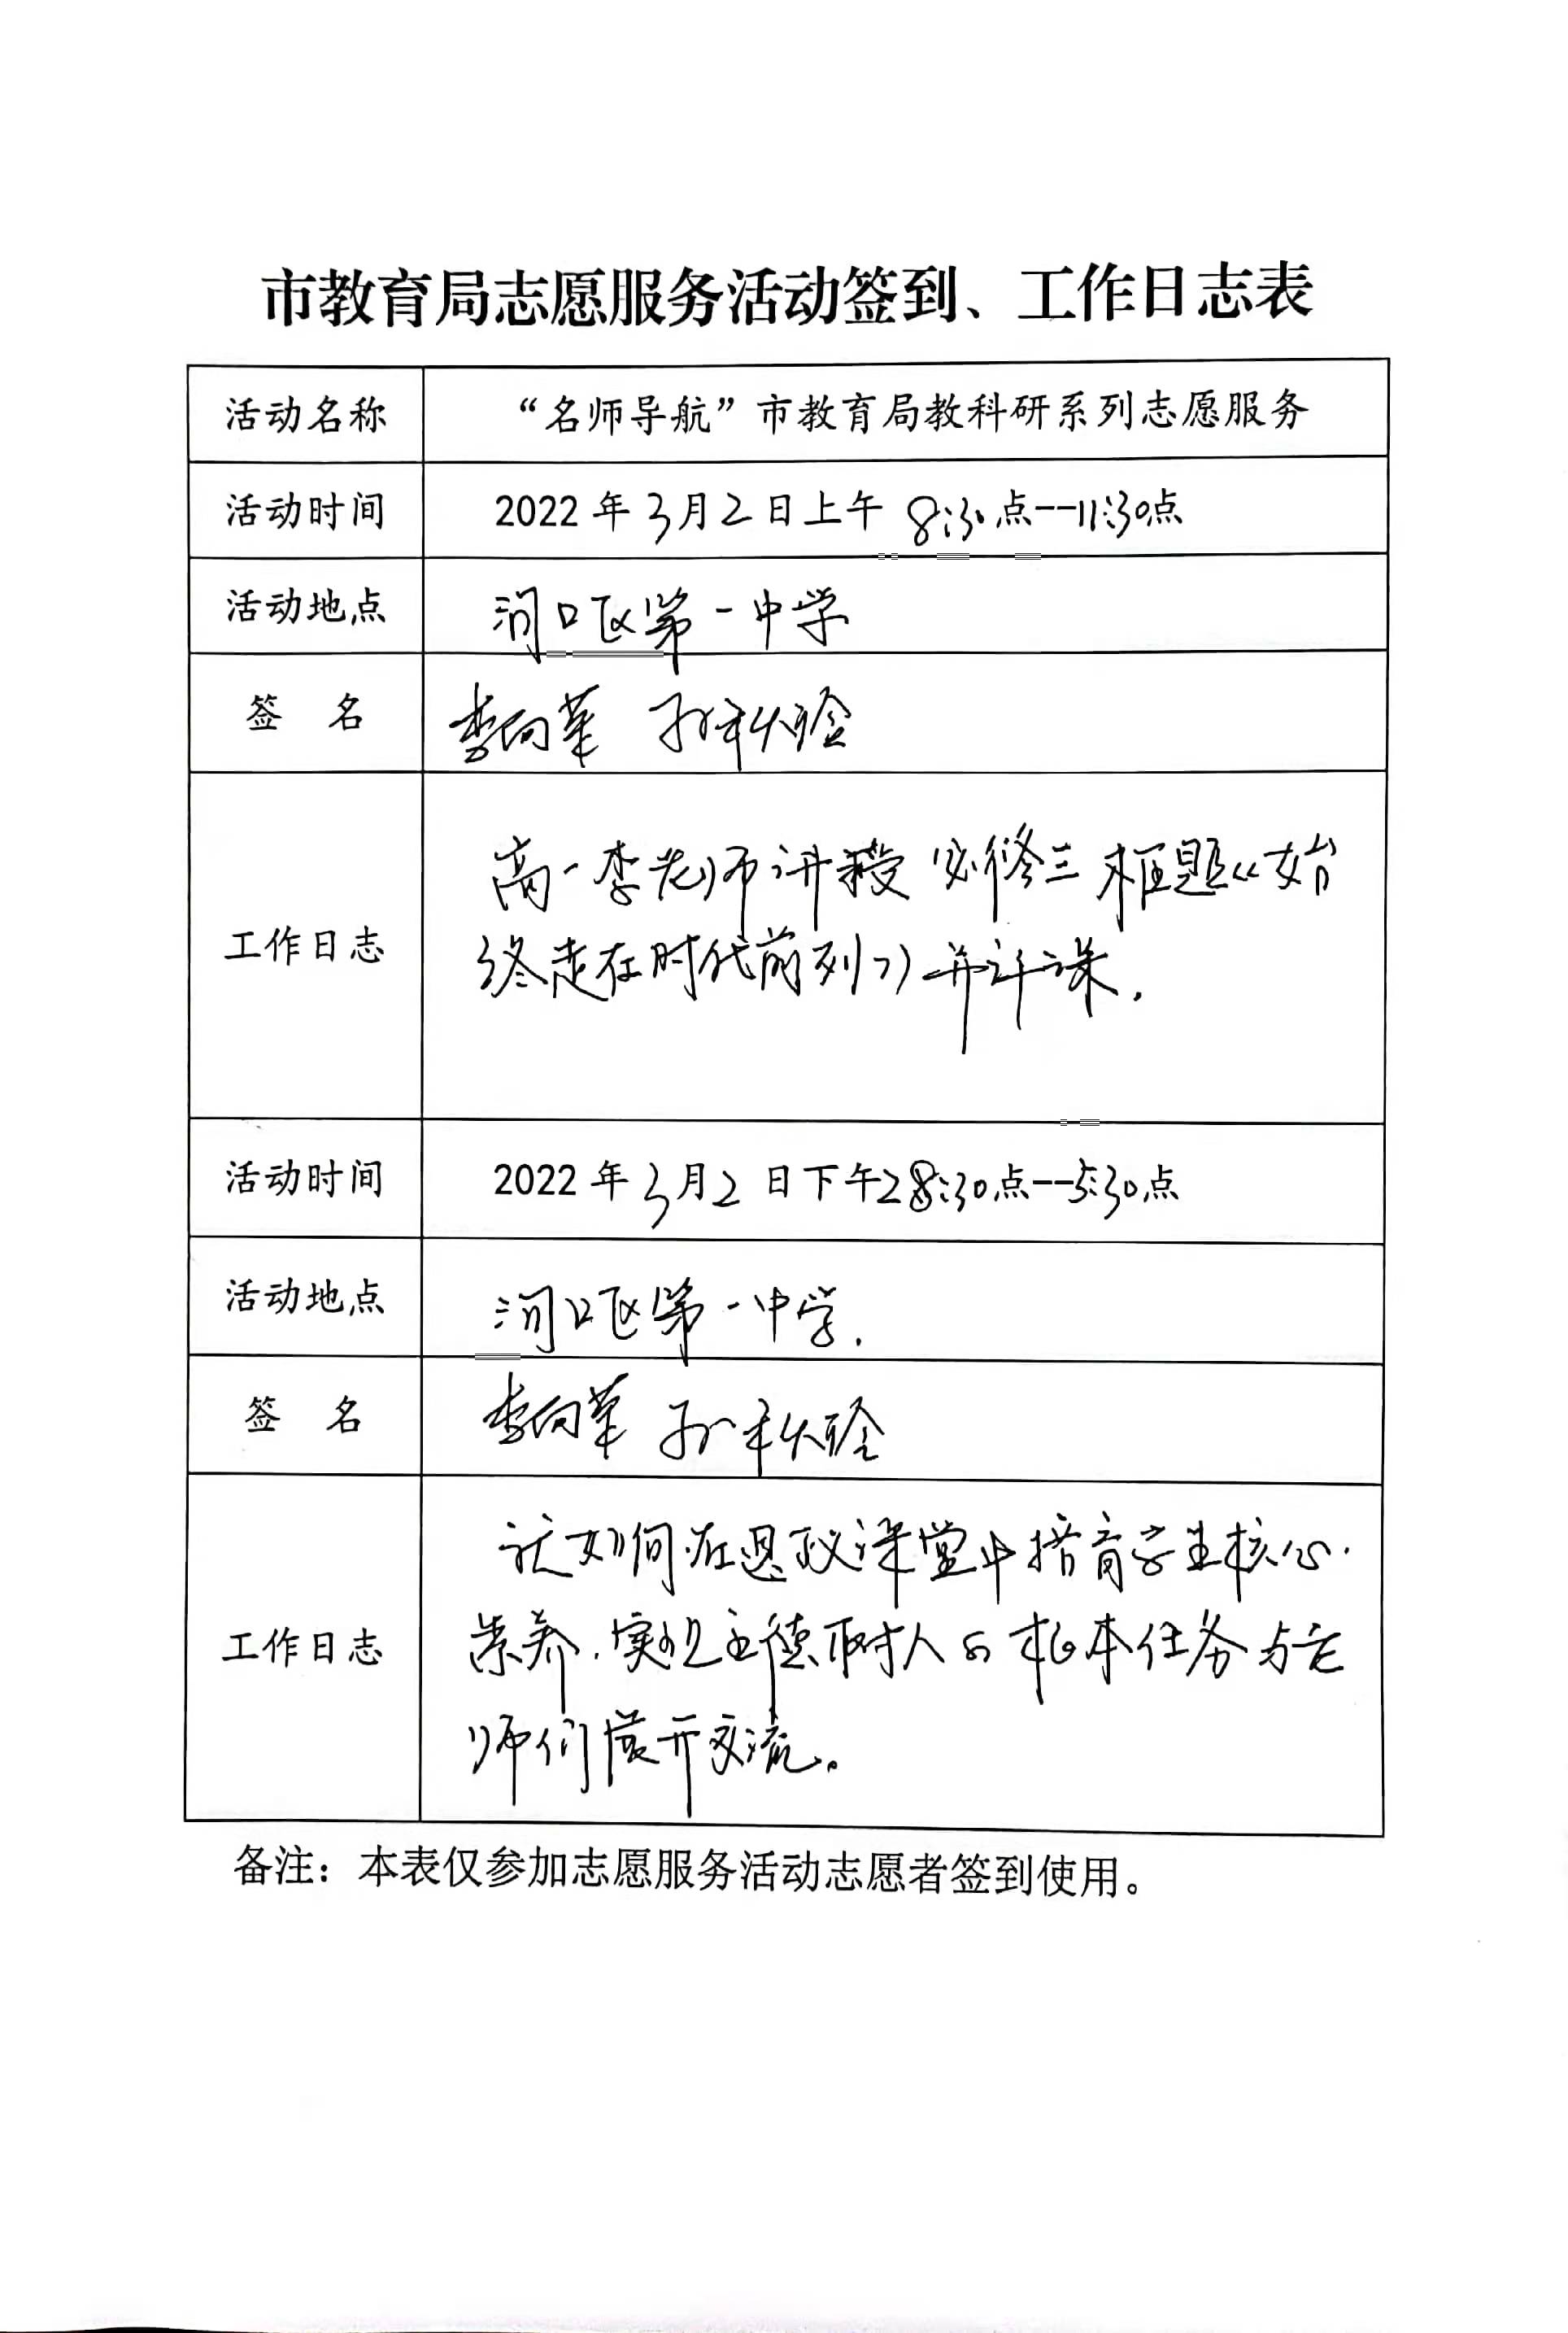 市教育局志愿服务活动签到、工作日志表
活动名称 “名师导航”市教育局教科研系列志愿服务
活动时间 2022年3月2日上午 8:30点--11:30点
活动地点 河口区第一中学
签 名 李向华 孙秋玲
工作日志 高一李老师讲授必修三框题《始
终走在时代前列》并评课.
活动时间 2022年3月2日下午2:30点--5:30点
活动地点 河口区第一中学.
签 名 李向华 孙秋玲
工作日志 就如何在思政课堂中培育学生核心
素养.实现立德树人的根本任务与老
师们展开交流。
备注：本表仅参加志愿服务活动志愿者签到使用。